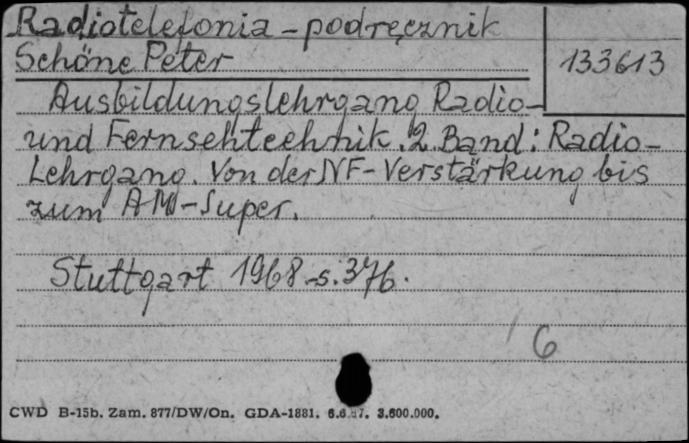 Radiotelefonia - podręcznik
Schöne Peter
133613
Ausbildungslehrgang Radio-
und Fernsehtechnik. 2. Band: Radio-
Lehrgang. Von der NF-Verstärkung bis
zum AM-Super.
Stuttgart 1968 s. 376.
6
CWD B-15b. Zam. 877/DW/On. GDA-1881. 6.6. 7. 3.600.000.